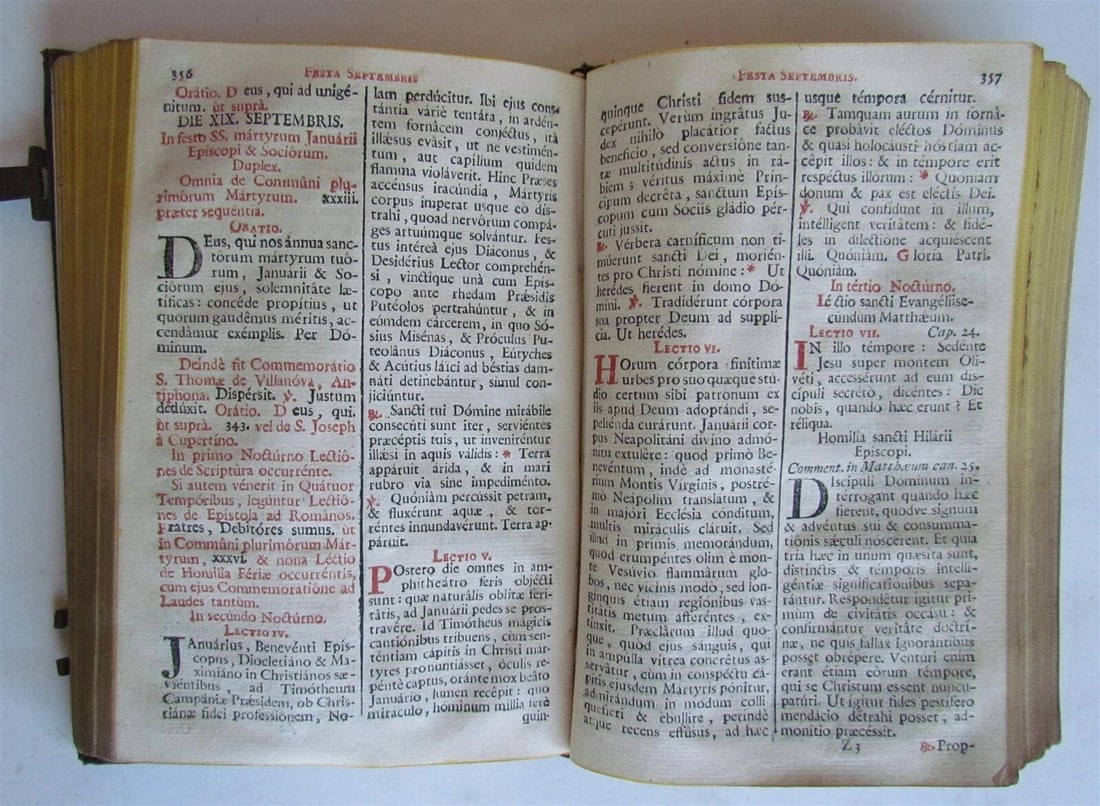 356
FESTA SEPTEMBRIS
Orátio. D eus, qui ad unigé-
nitum. ùt suprà.
DIE XIX. SEPTEMBRIS.
In festo SS. mártyrum Januárii
Episcopi & Sociórum.
Duplex.
Omnia de Commúni plu-
rimórum Mártyrum. xxxiii.
præter sequéntia.
ORATIO.
DEus, qui nos ánnua sanc-
tórum mártyrum tuó-
rum, Januárii & So-
ciórum ejus, solemnitáte læ-
tíficas: concéde propítius, ut
quorum gaudémus méritis, ac-
cendámur exémplis. Per Dó-
minum.
Deíndè fit Commemorátio
S. Thomæ de Villanóva, An-
típhona. Dispérsit. ℣. Justum
dedúxit. Orátio. D eus, qui.
ùt suprà. 343. vel de S. Joseph
à Cupertíno.
In primo Noctúrno Lectió-
nes de Scriptúra occurrénte.
Si autem vénerit in Quátuor
Tempóribus, legúntur Lectió-
nes de Epístola ad Romános.
Fratres, Debitóres sumus. ùt
in Commúni plurimórum Már-
tyrum, xxxvi. & nona Léctio
de Homilía Fériæ occurréntis,
cum ejus Commemoratióne ad
Laudes tantùm.
In secúndo Noctúrno.
LECTIO IV.
JAnuárius, Benevénti Epís-
copus, Diocletiáno & Ma-
ximiáno in Christiános sæ-
viéntibus, ad Timótheum
Campániæ Præsidem, ob Chris-
tiánæ fídei professiónem, No-
lam perdúcitur. Ibi ejus cons-
tántia váriè tentáta, in ardén-
tem fornácem conjéctus, ità
illæsus evásit, ut ne vestimén-
tum, aut capíllum quidem
flamma violáverit. Hinc Præses
accénsus iracúndia, Mártyris
corpus ímperat usque eò dis-
trahi, quoad nervórum compá-
ges artuúmque solvántur. Fes-
tus intéreà ejus Diáconus, &
Desidérius Lector comprehén-
si, vinctíque unà cum Epís-
copo ante rhedam Præsidis
Putéolos pertrahúntur, & in
eúmdem cárcerem, in quo Só-
sius Misénas, & Próculus Pu-
teolánus Diáconus, Eútyches
& Acútius láici ad béstias dam-
náti detinebántur, simul con-
jiciúntur.
℟. Sancti tui Dómine mirábile
consecúti sunt iter, serviéntes
præcéptis tuis, ut inveniréntur
illæsi in aquis válidis: * Terra
appáruit árida, & in mari
rubro via sine impediménto.
℣. Quóniàm percússit petram,
& fluxérunt aquæ, & tor-
réntes innundavérunt. Terra ap-
páruit.
LECTIO V.
POstero die omnes in am-
phitheátro feris objécti
sunt: quæ naturális oblítæ feri-
tátis, ad Januárii pedes se pros-
travére. Id Timótheus mágicis
cantiónibus tríbuens, cùm sen-
téntiam cápitis in Christi már-
tyres pronuntiásset, óculis re-
péntè captus, oránte mox beáto
Januário, lumen recépit: quo
miráculo, hóminum míllia ferè
quin-
FESTA SEPTEMBRIS.
357
quinque Christi fidem sus-
cepérunt. Verùm ingrátus Ju-
dex níhilò placátior factus
benefício, sed conversióne tan-
tæ multitúdinis actus in rá-
biem; véritus máximè Prín-
cipum decréta, sanctum Epís-
copum cum Sóciis gládio pér-
cuti jussit.
℟. Vérbera carníficum non ti-
muérunt sancti Dei, morién-
tes pro Christi nómine: * Ut
herédes fíerent in domo Dó-
mini. ℣. Tradidérunt córpora
sua propter Deum ad supplí-
cia. Ut herédes.
LECTIO VI.
HOrum córpora finítimæ
urbes pro suo quæque stú-
dio certum sibi patrónum ex
iis apud Deum adoptándi, se-
peliénda curárunt. Januárii cor-
pus Neapolitáni divíno admó-
nitu extulére: quod primò Be-
nevéntum, indè ad monasté-
rium Montis Vírginis, postré-
mò Neápolim translátum, &
in majóri Ecclésia cónditum,
multis miráculis cláruit. Sed
illud in primis memorándum,
quod erumpéntes olim è mon-
te Vesúvio flammárum glo-
bos, nec vicínis modò, sed lon-
gínquis étiam regiónibus vas-
titátis metum afferéntes, ex-
tínxit. Præclárum illud quo-
que, quod ejus sánguis, qui
in ampúlla vítrea concrétus as-
servátur, cùm in conspéctu cá-
pitis ejúsdem Mártyris pónitur,
admirándum in modum colli
quefíeri & ebullíre, períndè
atque recens effúsus, ad hæc
usque témpora cérnitur.
℟. Tamquam aurum in forná-
ce probávit eléctos Dóminus
& quasi holocáusti hóstiam ac-
cépit illos: & in témpore erit
respéctus illórum: * Quoniam
donum & pax est eléctis Dei.
℣. Qui confídunt in illum,
intélligent veritátem: & fidé-
les in dilectióne acquiéscent
illi. Quóniàm. G lória Patri.
Quóniàm.
In tértio Noctúrno.
Lé ctio sancti Evangélii se-
cúndum Matthæum.
LECTIO VII. Cap. 24.
IN illo témpore: Sedénte
Jesu super montem Oli-
véti, accessérunt ad eum dis-
cípuli secretò, dicéntes: Dic
nobis, quando hæc erunt? Et
réliqua.
Homilía sancti Hilárii
Epíscopi.
Comment. in Matthæum can. 25.
DIscípuli Dóminum in-
térrogant quando hæc
fíerent, quodve signum
& advéntus sui & consumma-
tiónis sæculi nóscerent. Et quia
tria hæc in unum quæsíta sunt,
distínctis & témporis intelli-
géntiæ significatiónibus sepa-
rántur. Respondétur ígitur pri-
mùm de civitátis occásu: &
confirmántur veritáte doctrí-
næ, ne quis fallax ignorántibus
posset obrépere. Ventúri enim
erant étiam eórum témpore,
qui se Christum essent nuncu-
patúri. Ut ígitur fides pestífero
mendácio détrahi posset, ad-
monítio præcéssit.
Z 3
℟. Prop-